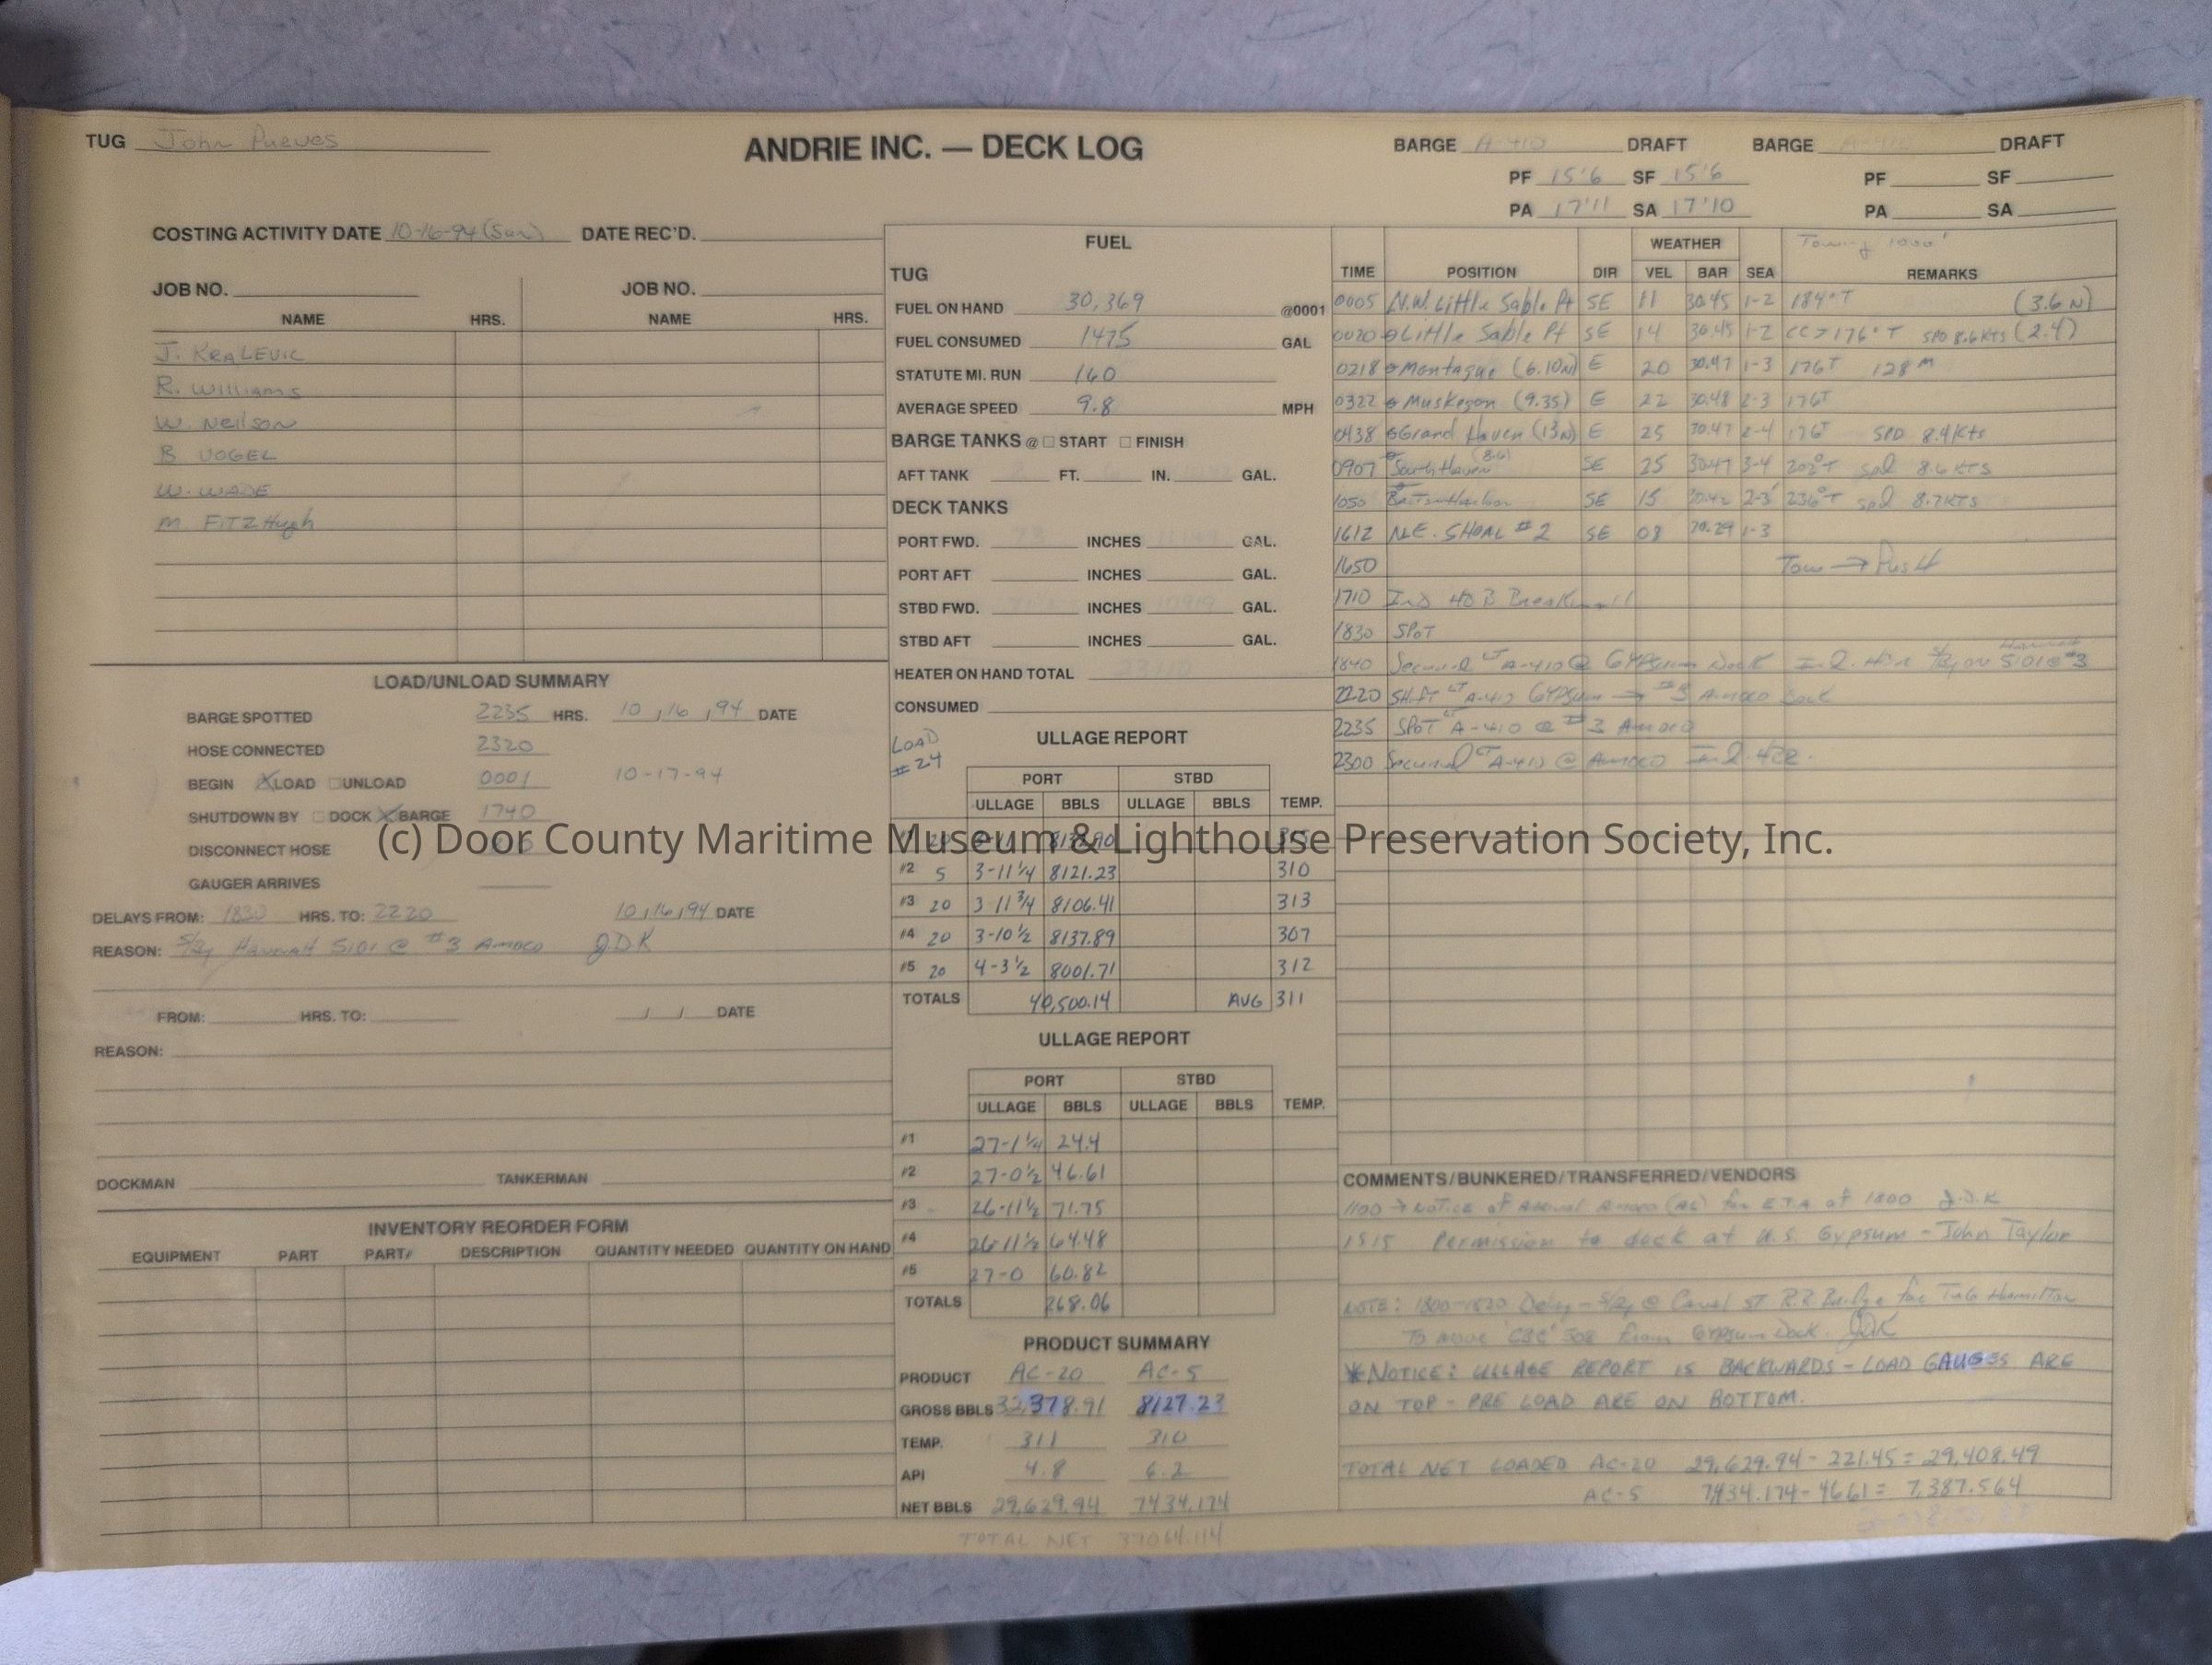 TUG John Purves
ANDRIE INC. — DECK LOG
BARGE A-410 DRAFT BARGE A-410 DRAFT
PF 15'6 SF 15'6 PF SF
PA 17'11 SA 17'10 PA SA
COSTING ACTIVITY DATE 10-16-94 (Sun) DATE REC'D.
JOB NO. JOB NO.
NAME HRS. NAME HRS.
J. KRALEVIC
R. WILLIAMS
W. NEILSON
B VOGEL
W. WADE
M. FITZHugh
LOAD/UNLOAD SUMMARY
BARGE SPOTTED 2235 HRS. 10,16,94 DATE
HOSE CONNECTED 2320
BEGIN LOAD UNLOAD 0001 10-17-94
SHUTDOWN BY DOCK BARGE 1740
DISCONNECT HOSE
GAUGER ARRIVES
DELAYS FROM: 1830 HRS. TO: 2220 10,16,94 DATE
REASON: S/By HANNAH 5101 @ #3 AMOCO J.D.K
FROM: HRS. TO: / / DATE
REASON:
DOCKMAN TANKERMAN
INVENTORY REORDER FORM
EQUIPMENT PART PART# DESCRIPTION QUANTITY NEEDED QUANTITY ON HAND
FUEL
TUG
FUEL ON HAND 30,369 @0001
FUEL CONSUMED 1475 GAL
STATUTE MI. RUN 160
AVERAGE SPEED 9.8 MPH
BARGE TANKS @ START FINISH
AFT TANK FT. IN. GAL.
DECK TANKS
PORT FWD. INCHES GAL.
PORT AFT INCHES GAL.
STBD FWD. INCHES 10919 GAL.
STBD AFT INCHES GAL.
HEATER ON HAND TOTAL
CONSUMED
LOAD #24
ULLAGE REPORT
PORT STBD
ULLAGE BBLS ULLAGE BBLS TEMP.
20
#2 5 3-11 1/4 8121.23 310
#3 20 3 11 3/4 8106.41 313
#4 20 3-10 1/2 8137.89 307
#5 20 4-3 1/2 8001.71 312
TOTALS 40,500.14 AVG 311
ULLAGE REPORT
PORT STBD
ULLAGE BBLS ULLAGE BBLS TEMP.
#1 27-1 1/4 24.4
#2 27-0 1/2 46.61
#3 26-11 1/2 71.75
#4 26-11 1/2 64.48
#5 27-0 60.82
TOTALS 268.06
PRODUCT SUMMARY
PRODUCT AC-20 AC-5
GROSS BBLS 32,378.91 8127.23
TEMP. 311 310
API 4.8 6.2
NET BBLS 29,629.94 7434.174
TOTAL NET 37064.114
WEATHER Towing 1000'
TIME POSITION DIR VEL BAR SEA REMARKS
0005 N.W. Little Sable Pt SE 11 30.45 1-2 184°T (3.6 N)
0020 Little Sable Pt SE 14 30.45 1-2 CC > 176°T SPD 8.6 KTS (2.4)
0218 Montague (6.10N) E 20 30.47 1-3 176T 128 M
0322 Muskegon (9.35) E 22 30.48 2-3 176T
0438 Grand Haven (13N) E 25 30.47 2-4 176T SPD 8.4 Kts
0907 South Haven (8.6) SE 25 30.47 3-4 202°T spd 8.6 KTS
1050 SE 15 30.42 2-3' 236°T spd 8.7KTS
1612 N.E. SHOAL #2 SE 08 30.29 1-3
1650 Tow → Push
1710 Ind HOB Breakwall
1830 SPOT
1840 Secured LT A-410 @ GYPSUM Dock S/By on Hannah 5101 @ #3
2220 Shift LT A-410 GYPSUM → #3 Amoco Dock
2235 SPOT LT A-410 @ #3 Amoco
2300 Secured LT A-410 @ Amoco
COMMENTS/BUNKERED/TRANSFERRED/VENDORS
1100 → Notice of Arrival Amoco (AC) for ETA of 1800 J.D.K
1515 Permission to dock at U.S. Gypsum - John Taylor
NOTE: 1800-1820 Delay - S/By @ Canal ST R.R Bridge for TUG Hamilton
To move 'CBC' 508 from GYPSUM Dock. JDK
*NOTICE: ULLAGE REPORT IS BACKWARDS - LOAD GAUGES ARE
ON TOP - PRE LOAD ARE ON BOTTOM.
TOTAL NET LOADED AC-20 29,629.94 - 221.45 = 29,408.49
AC-5 7,434.174 - 46.61 = 7,387.564
(c) Door County Maritime Museum & Lighthouse Preservation Society, Inc.